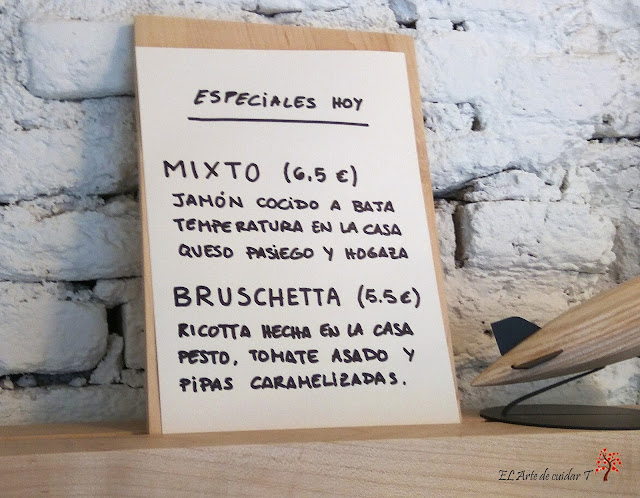 ESPECIALES HOY
MIXTO (6,5 €)
JAMÓN COCIDO A BAJA
TEMPERATURA EN LA CASA
QUESO PASIEGO Y HOGAZA
BRUSCHETTA (5.5€)
RICOTTA HECHA EN LA CASA
PESTO, TOMATE ASADO Y
PIPAS CARAMELIZADAS.
EL Arte de cuidar T